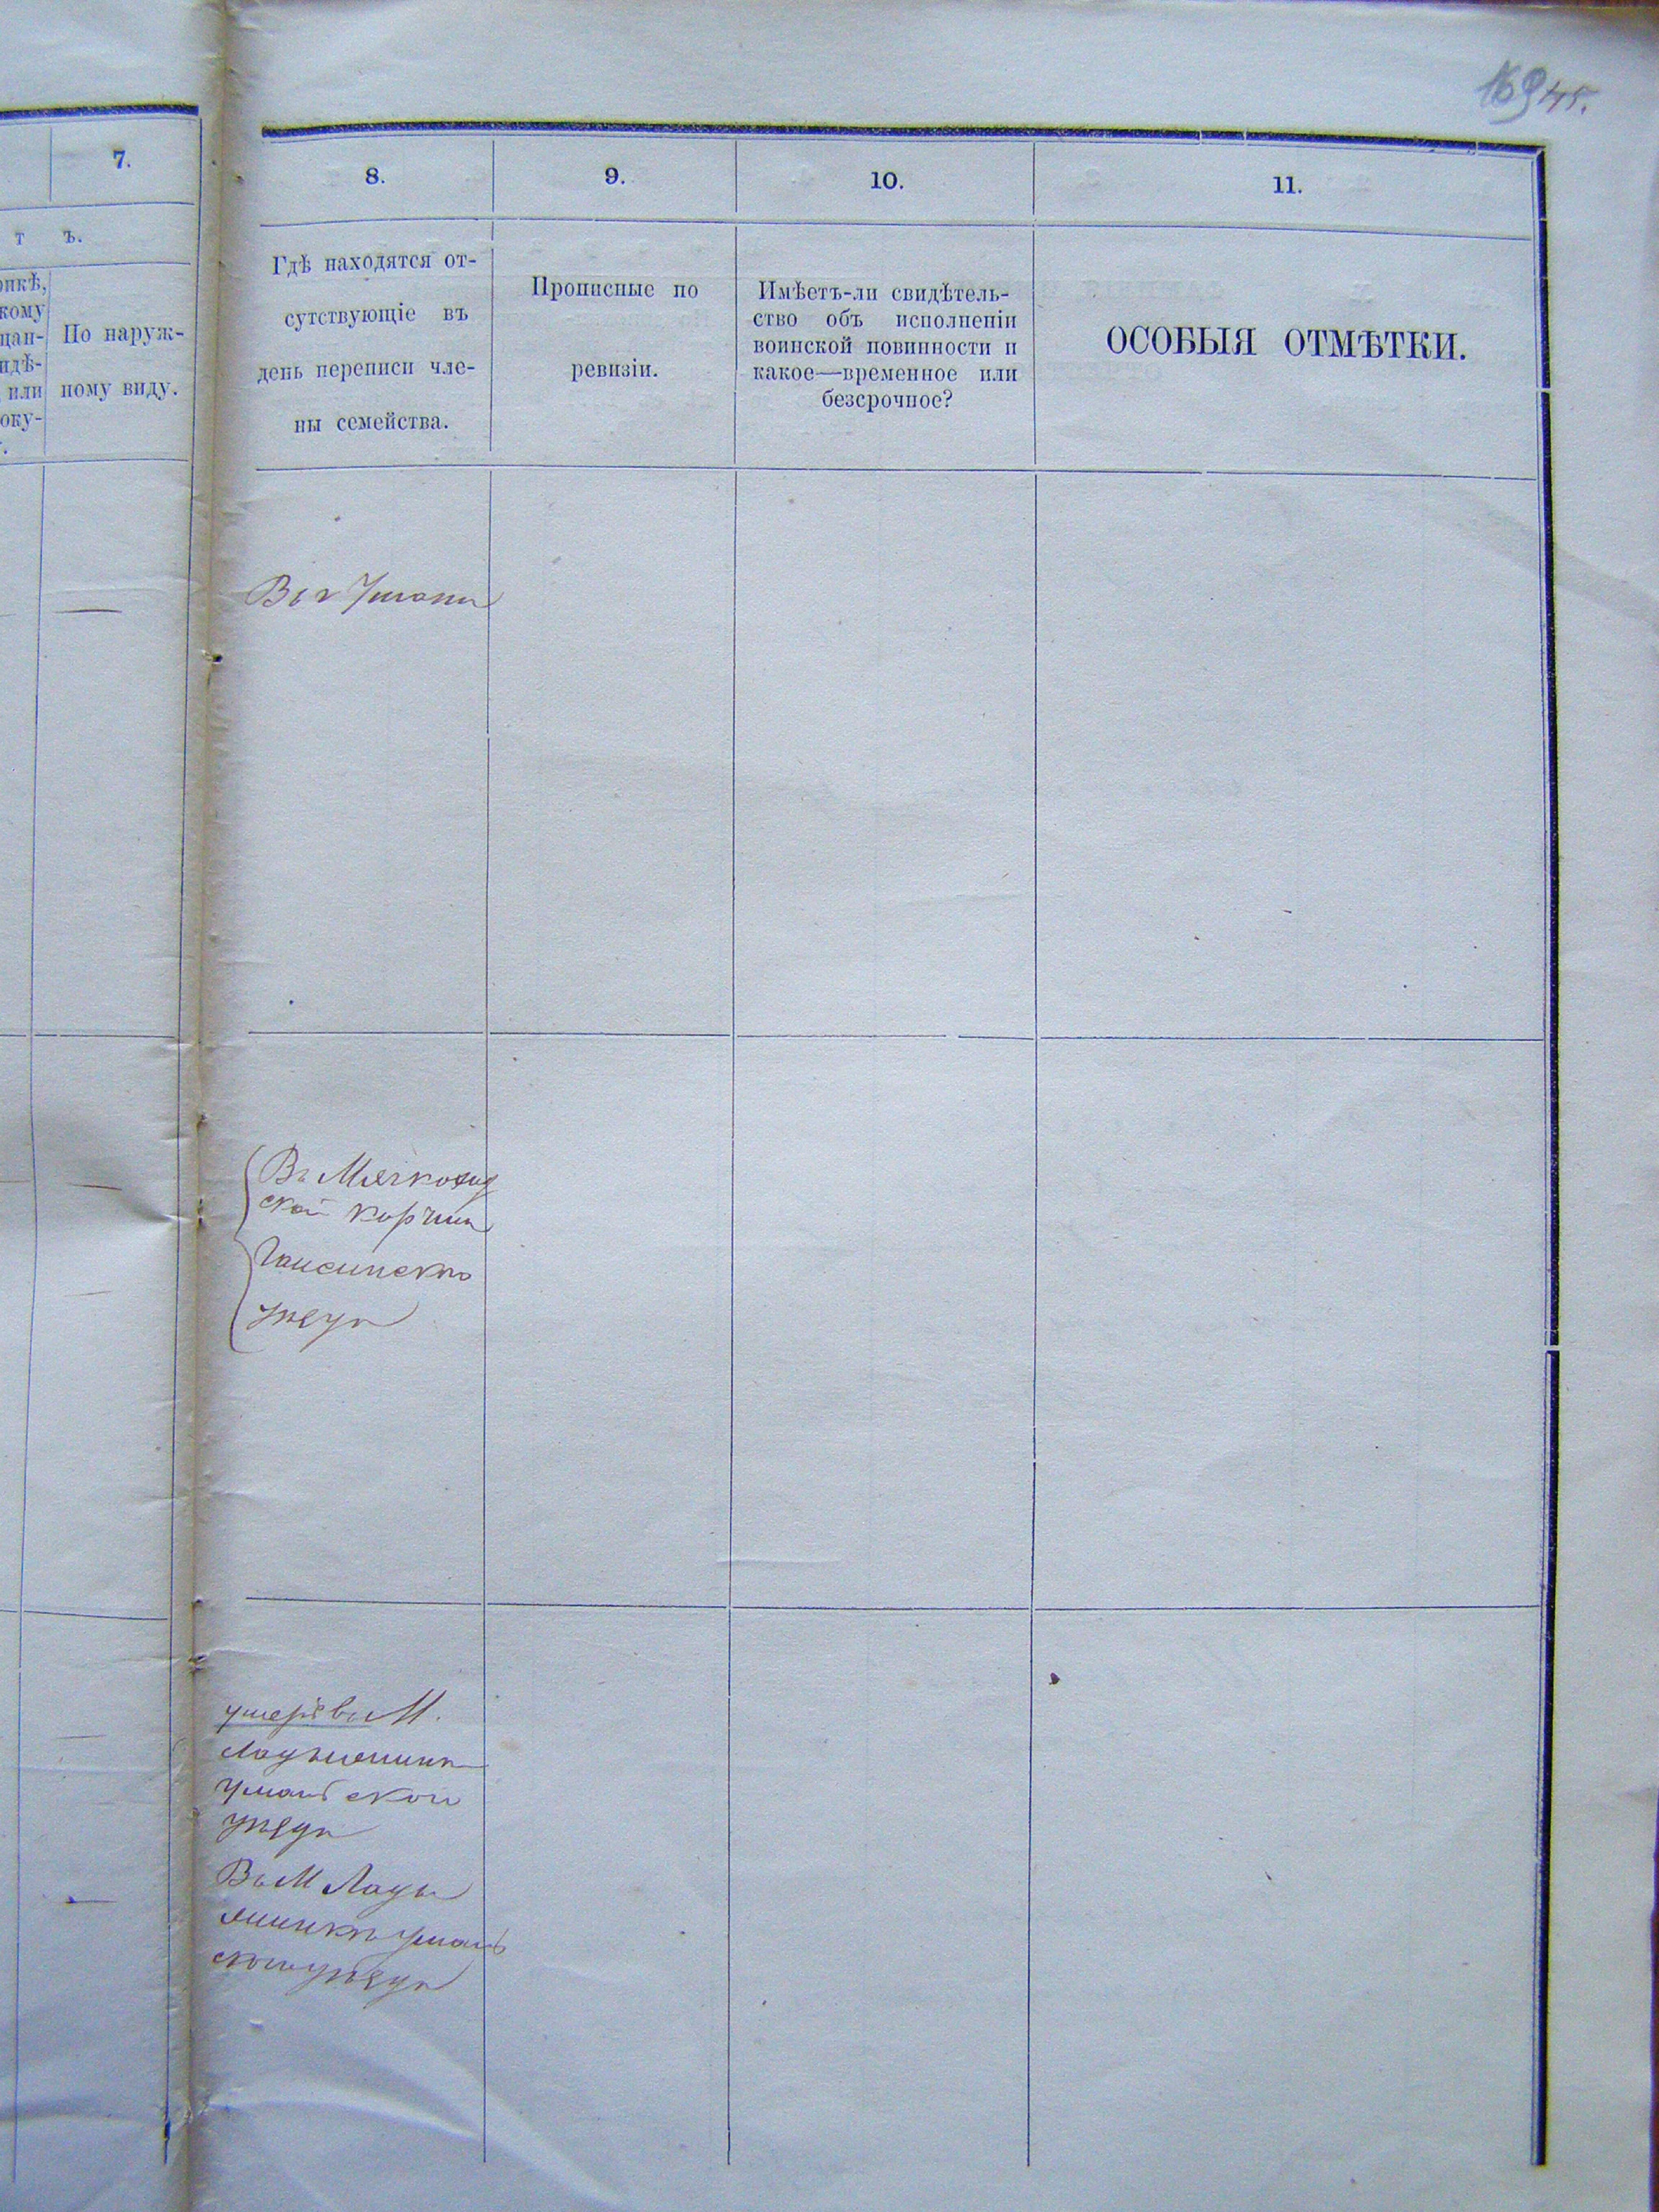 169 45.
7.
8.
9.
10.
11.
т ъ.
По наруж-
ному виду.
Гдѣ находятся от-
сутствующіе въ
день переписи чле-
ны семейства.
Прописные по
ревизіи.
Имѣетъ-ли свидѣтель-
ство объ исполненіи
воинской повинности и
какое—временное или
безсрочное?
ОСОБЫЯ ОТМѢТКИ.
Въ г Умани
Въ
ской корчмѣ
Гайсинско
уѣзда
въ М.
Ладыженкѣ
Уманской
уѣзда
Въ М Лады
женкѣ Уман
ской уѣзда